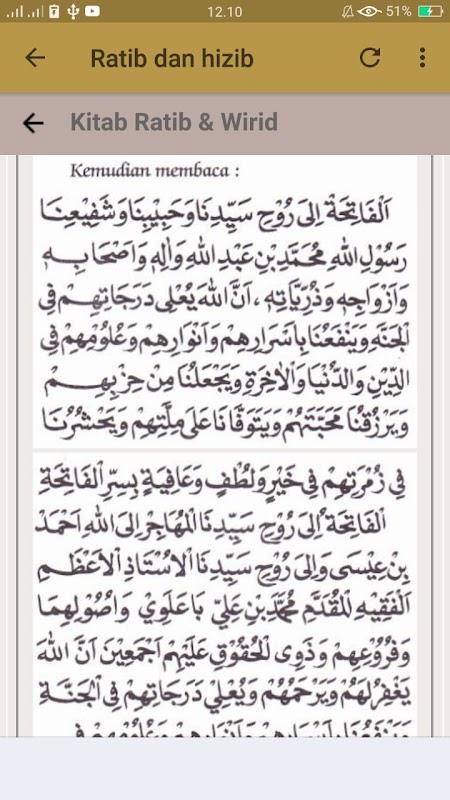 12.10
51%
Ratib dan hizib
Kitab Ratib & Wirid
Kemudian membaca :
اَلْفَاتِحَةْ اِلَى رُوْحِ سَيِّدِنَا وَحَبِيْبِنَا وَشَفِيْعِنَا
رَسُوْلِ اللهِ مُحَمَّدِ بْنِ عَبْدِ اللهِ وَاٰلِهِ وَاَصْحَابِهِ
وَاَزْوَاجِهِ وَذُرِّيَّاتِهِ، اَنَّ اللهَ يُعْلِى دَرَجَاتِهِمْ فِى
الْجَنَّهِ وَيَنْفَعُنَا بِاَسْرَارِهِمْ وَاَنْوَارِهِمْ وَعُلُوْمِهِمْ فِى
الدِّيْنِ وَالدُّنْيَا وَالْاٰخِرَةِ وَيَجْعَلُنَا مِنْ حِزْبِهِمْ
وَيَرْزُقُنَا مَحَبَّتَهُمْ وَيَتَوَفَّانَا عَلَى مِلَّتِهِمْ وَيَحْشُرُنَا
فِي زُمْرَتِهِمْ فِي خَيْرٍ وَلُطْفٍ وَعَافِيَةٍ بِسِرِّ الْفَاتِحَةِ
الْفَاتِحَةُ اِلَى رُوْحِ سَيِّدِنَا الْمُهَاجِرِ اِلَى اللهِ اَحْمَدَ
بْنِ عِيْسَى وَاِلَى رُوْحِ سَيِّدِنَا الْاُسْتَاذِ الْاَعْظَمِ
اَلْفَقِيْهِ الْمُقَدَّمِ مُحَمَّدِ بْنِ عَلِيّ بَاعَلَوِيْ وَاُصُوْلِهِمَا
وَفُرُوْعِهِمْ وَذَوِى الْحُقُوْقِ عَلَيْهِمْ اَجْمَعِيْنَ اَنَّ اللهَ
يَغْفِرُ لَهُمْ وَيَرْحَمُهُمْ وَيُعْلِي دَرَجَاتِهِمْ فِي الْجَنَّةِ
وَيَنْفَعُنَا بِاَسْرَارِهِمْ وَاَنْوَارِهِمْ وَعُلُوْمِهِمْ فِي